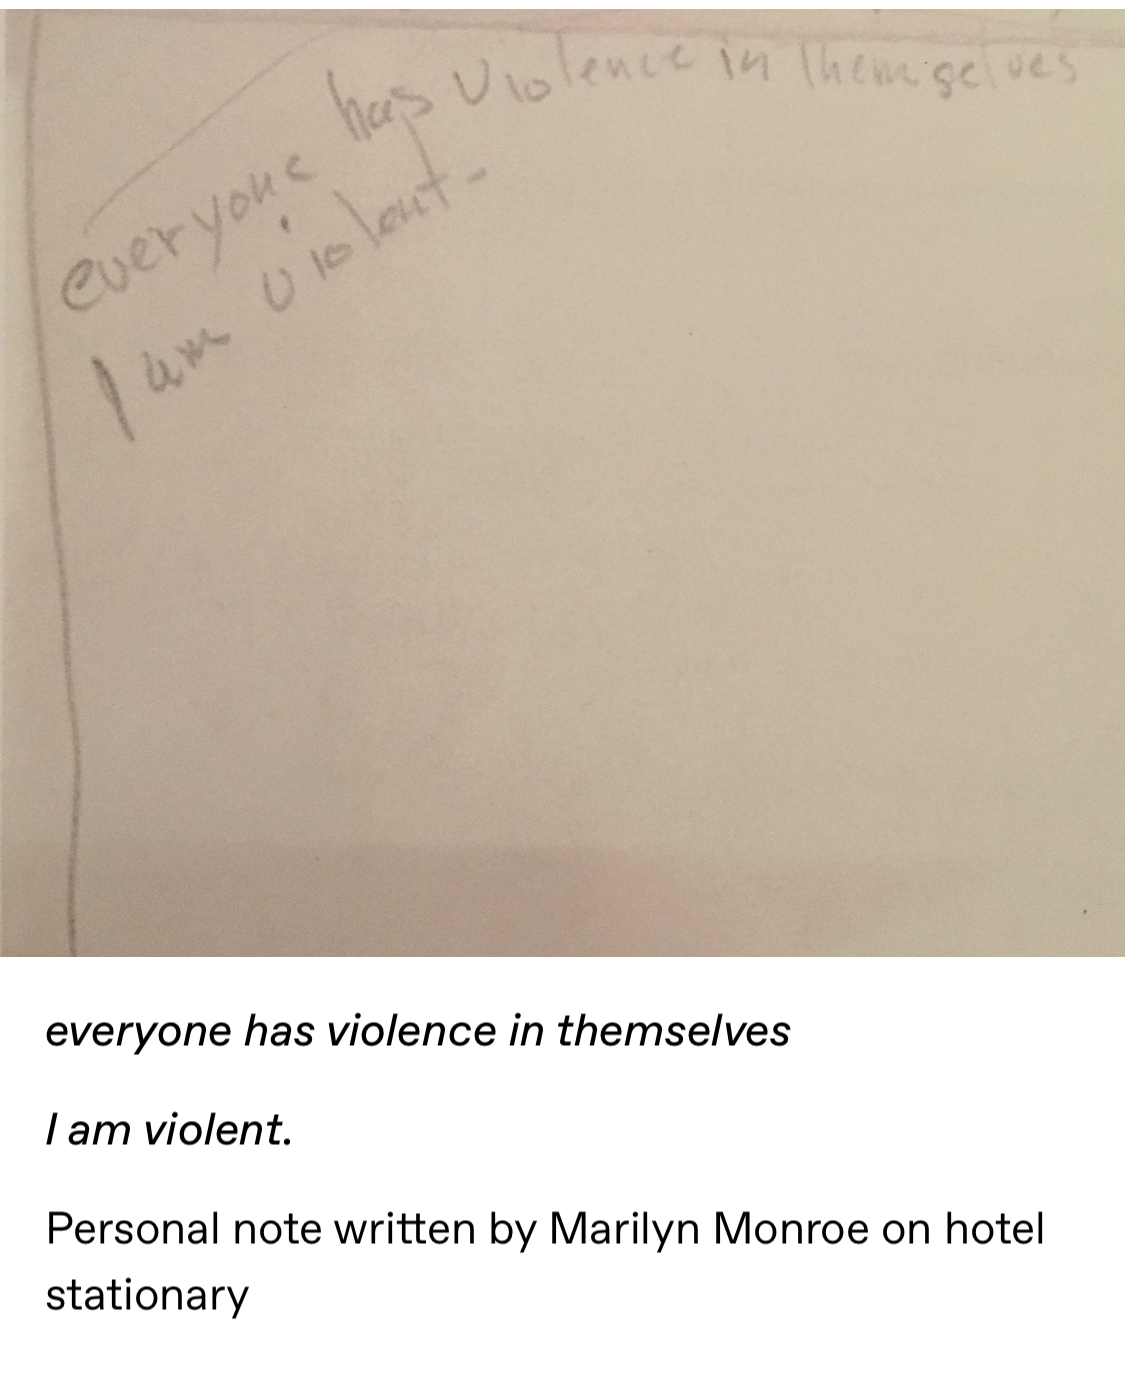 everyone has violence in themselves
I am violent-
everyone has violence in themselves
I am violent.
Personal note written by Marilyn Monroe on hotel
stationary